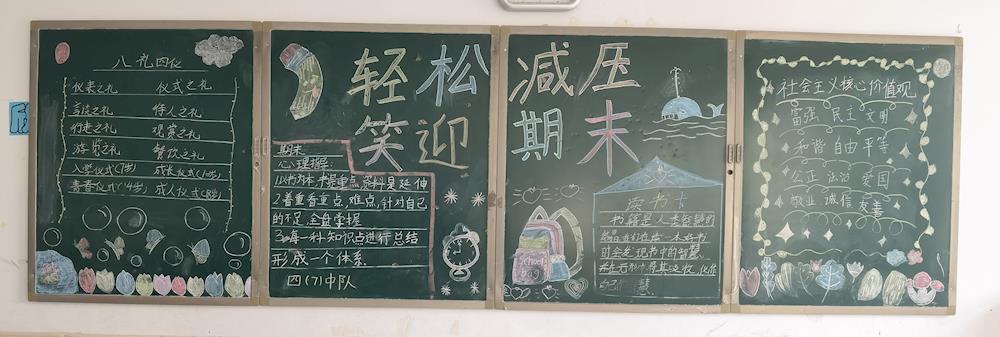 八礼四仪
仪表之礼 仪式之礼
言谈之礼 待人之礼
行走之礼 观赏之礼
游览之礼 餐饮之礼
入学仪式(7岁) 成长仪式(10岁)
青春仪式(14岁) 成人仪式(18岁)
轻松 减压
笑迎 期末
期末
心理指导:
1.以书为本,书是重点,资料是延伸
2.着重看重点,难点,针对自己
的不足,全盘掌握
3.每一科知识点进行总结
形成一个体系.
四(7)中队
School
bag
读书卡
书籍是人类智慧的
我们在读一本好书
时会发现书中的智慧
慧
社会主义核心价值观
富强 民主 文明
和谐 自由 平等
公正 法治 爱国
敬业 诚信 友善